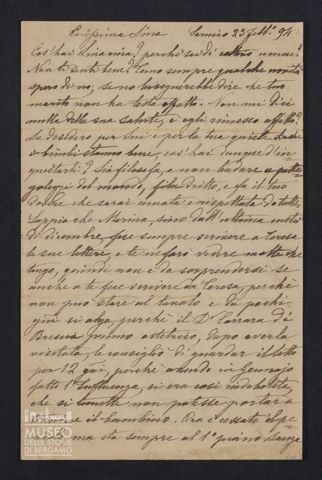 Carissima Lina Sarnico 23 febb.º 94
Cos'hai Lina mia? perchè sei di cattivo umore?
Non ti senti bene? Temo sempre qualche novità
spero di no, se no bisognerebbe dire che tuo
marito non ha testa affatto. Non mi dici
nulla della sua salute, è egli rimesso affatto?
Lo desidero per lui e per la tua quiete. Se anche
i bimbi stanno bene, cos'hai dunque d'in-
quietarti? Sii filosofa, e non badare ai pette-
golezzi del mondo, fila dritto, e fa il tuo
dovere che sarai amata e rispettata da tutti.
Sappia che Marina, sino dall'ultima metà
di dicembre, fece sempre scrivere a Teresa
le sue lettere, e te ne farò vedere molte che
tengo, quindi non è da sorprendersi se
anche a te fece scrivere da Teresa, perchè
non può stare al tavolo e da pochi
giorni si alza, perchè il Dr Carrara di
Brescia primo ostetrico, dopo averla
visitata le consigliò di guardar il letto
per 12 gni, perchè avendo in Gennajo
fatto l'Influenza, si era così indebolita,
che si temette non potesse portar a
termine il bambino. Ora è cessato il pe-
ma sta sempre al 1º piano senza
MUSEO
DELLE STORIE
DI BERGAMO